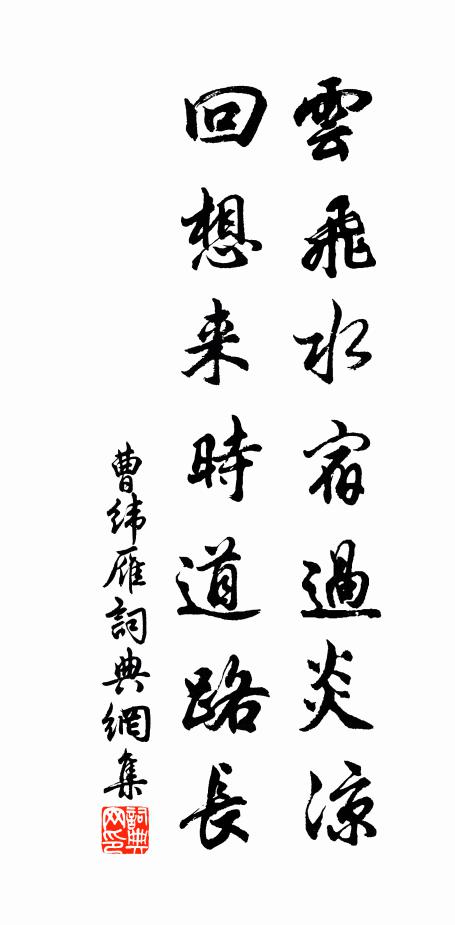 雲飛水宿過炎涼
回想来時道路長
曹緯雁詞典網集
詞典网印